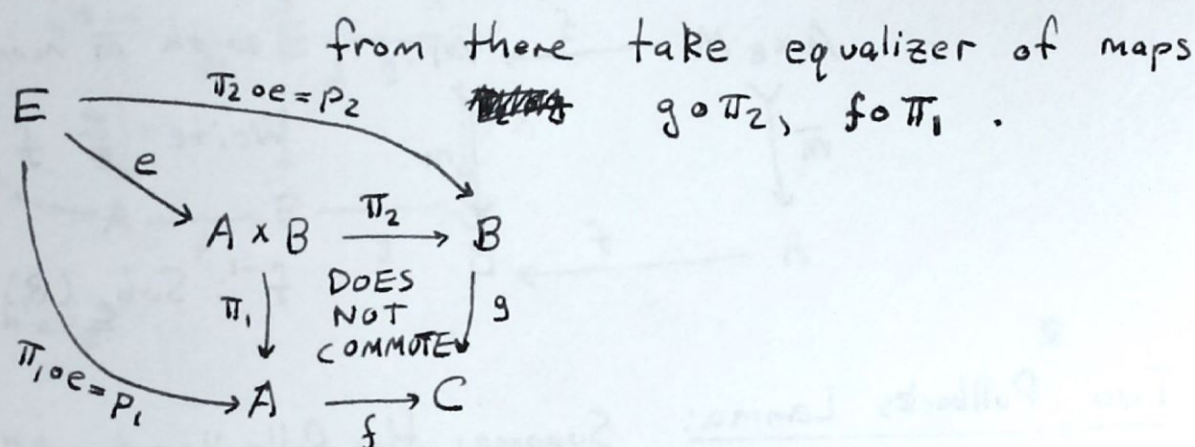 from there take equalizer of maps
g∘π₂, f∘π₁ .
E
π₂∘e = p₂
e
A × B
π₂
B
π₁
DOES
NOT
COMMUTE
g
π₁∘e = p₁
A
f
C